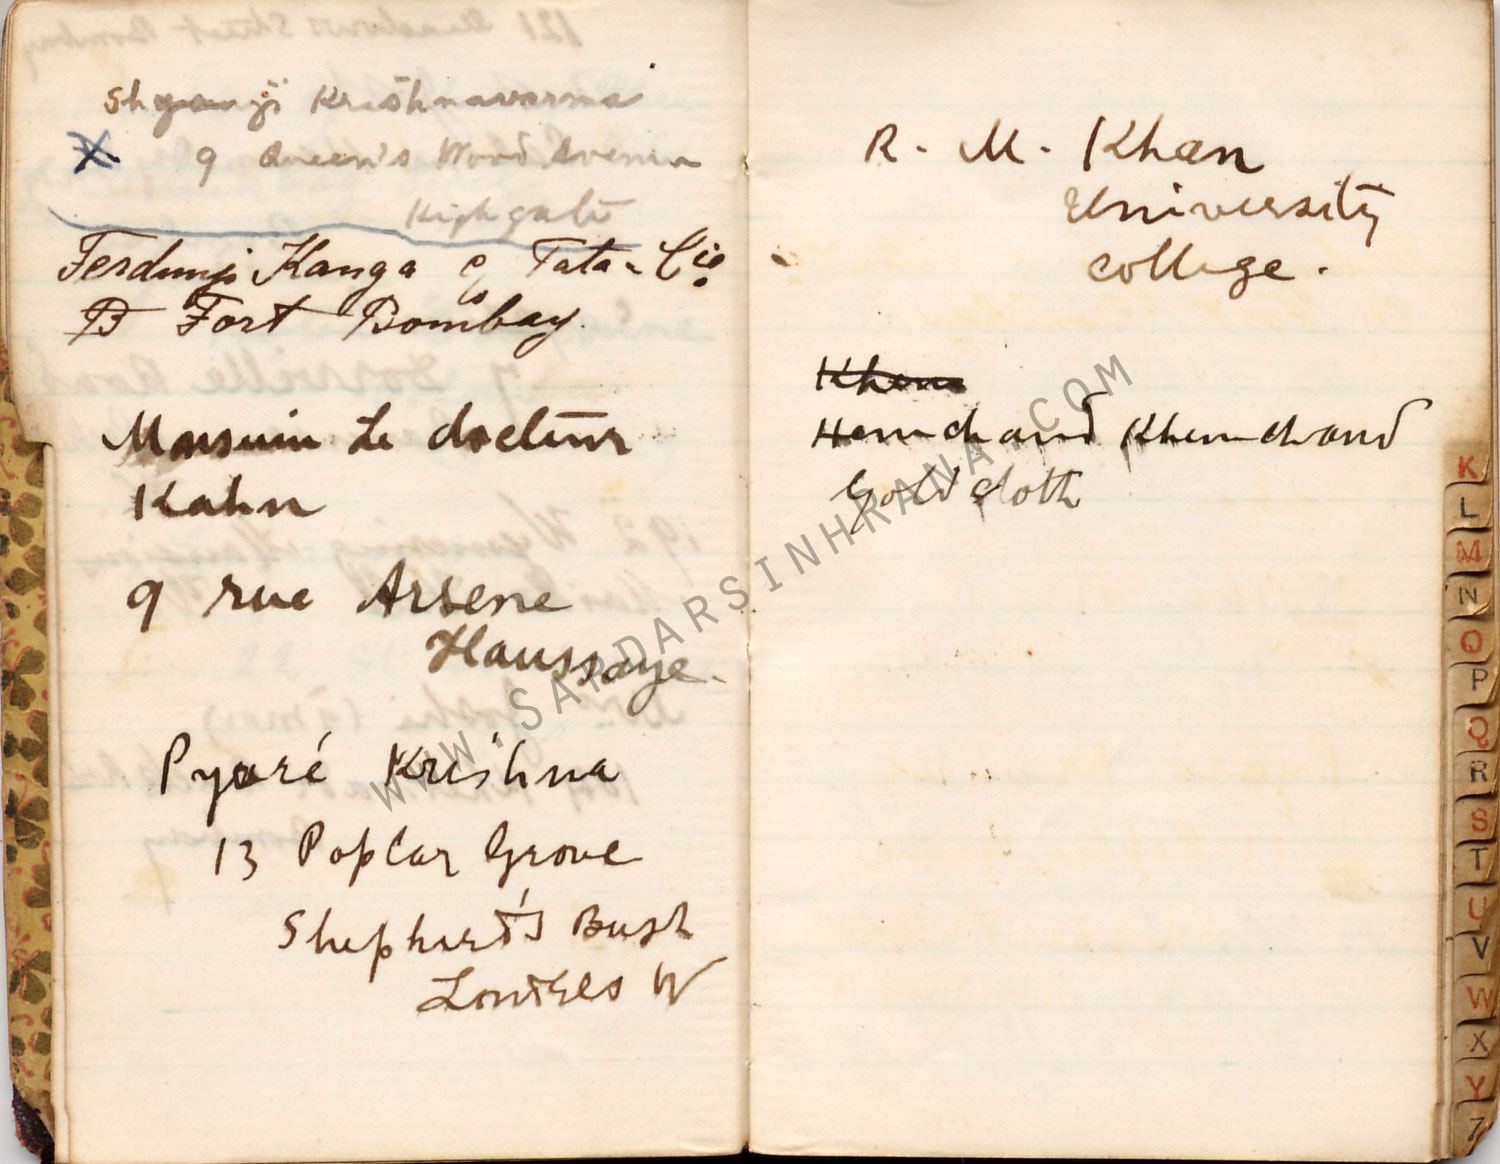 Shyamji Krishnavarma
X 9 Queen's Wood Avenue
Highgate
Ferdunji Kanga c/o Tata & Cie.
Fort Bombay.
Le docteur
Kahn
9 rue Arsene
Haussaye.
Pyaré Krishna
13 Poplar Grove
Shepherd's Bush
W
R. M. Khan
University
College.
Khem
Hemchand Khemchand
Gold cloth
K
L
M
N
O
P
Q
R
S
T
U
V
W
X
Y
Z
WWW.SARDARSINHRANA.COM